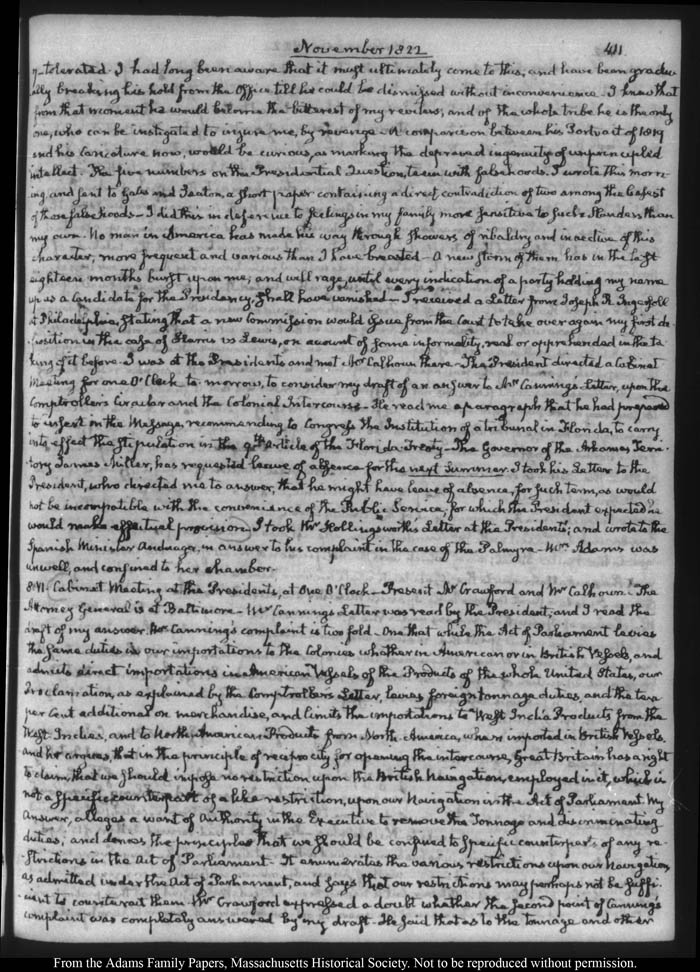 November 1822
411
tolerated. I had long been aware that it must ultimately come to this, and have been gradu
ally breaking his hold from the Office till he could be dismissed without inconvenience. I knew that
from that moment he would become the bitterest of my revilers; and of the whole tribe he is the only
one, who can be instigated to injure me, by revenge. A comparison between his Portrait of 1819
and his Caricature now, would be curious, as marking the depraved ingenuity of unprincipled
intellect. The five numbers on the Presidential Question, teem with falsehoods. I wrote this morn-
ing, and sent to Gales and Seaton, a short paper containing a direct contradiction of two among the basest
of those falsehoods — I did this in deference to feelings in my family more sensitive to such Slanders than
my own. No man in America has made his way through showers of ribaldry and invective of this
character, more frequent and various than I have breasted — A new storm of them has in the last
eighteen months burst upon me; and will rage, until every indication of a party holding my name
up as a Candidate for the Presidency, shall have vanished — I received a Letter from Joseph R. Ingersoll
at Philadelphia, stating that a new Commission would issue from the Court to take over again my first de-
position in the case of Harris vs Lewis, on account of some informality, real or apprehended in the ta-
king of it before. I was at the Presidents and met Mr Calhoun there. The President directed a Cabinet
Meeting for one O'Clock to-morrow, to consider my draft of an answer to Mr Cannings Letter, upon the
Comptrollers Circular and the Colonial Intercourse. He read me a paragraph that he had prepared
to insert in the Message, recommending to Congress the Institution of a tribunal in Florida, to carry
into effect the stipulation in the 9th Article of the Florida Treaty — The Governor of the Arkansas Terri-
tory James Miller, has requested leave of absence for the next Summer. I took his Letter to the
President, who directed me to answer, that he might have leave of absence, for such term, as would
not be incompatible with the convenience of the Public Service; for which the President expected he
would make effectual provision. I took Mr Hollingsworth's Letter at the Presidents; and wrote to the
Spanish Minister Anduaga, in answer to his complaint in the case of the Palmyra — Mrs Adams was
unwell, and confined to her chamber.
8. VI. Cabinet Meeting at the Presidents, at One O'Clock — Present Mr Crawford and Mr Calhoun. The
Attorney General is at Baltimore — Mr Cannings Letter was read by the President; and I read the
draft of my answer. Mr Canning's complaint is two fold — One that while the Act of Parliament levies
the same duties on our importations to the Colonies whether in American or in British Vessels, and
admits direct importations in American Vessels of the Products of the whole United States, our
Proclamation, as explained by the Comptrollers Letter, levies foreign tonnage duties, and the ten
per Cent additional on merchandise, and limits the importations to West India Products from the
West Indies, and to North American Products from North America, when imported in British Vessels.
and he argues, that in the principle of reciprocity for opening the intercourse, Great Britain has a right
to claim, that we should impose no restriction upon the British Navigation, employed in it, which is
not a specific counterpart of a like restriction, upon our Navigation in the Act of Parliament. My
Answer, alleges a want of Authority in the Executive to remove the Tonnage and discriminating
duties; and denies the principle that we should be confined to specific counterparts of any re-
strictions in the Act of Parliament — It enumerates the various restrictions upon our Navigation,
as admitted under the Act of Parliament, and says that our restrictions may perhaps not be suffi-
cient to counteract them. Mr Crawford expressed a doubt whether the second point of Canning's
complaint was completely answered by my draft. He said that as to the tonnage and other
From the Adams Family Papers, Massachusetts Historical Society. Not to be reproduced without permission.